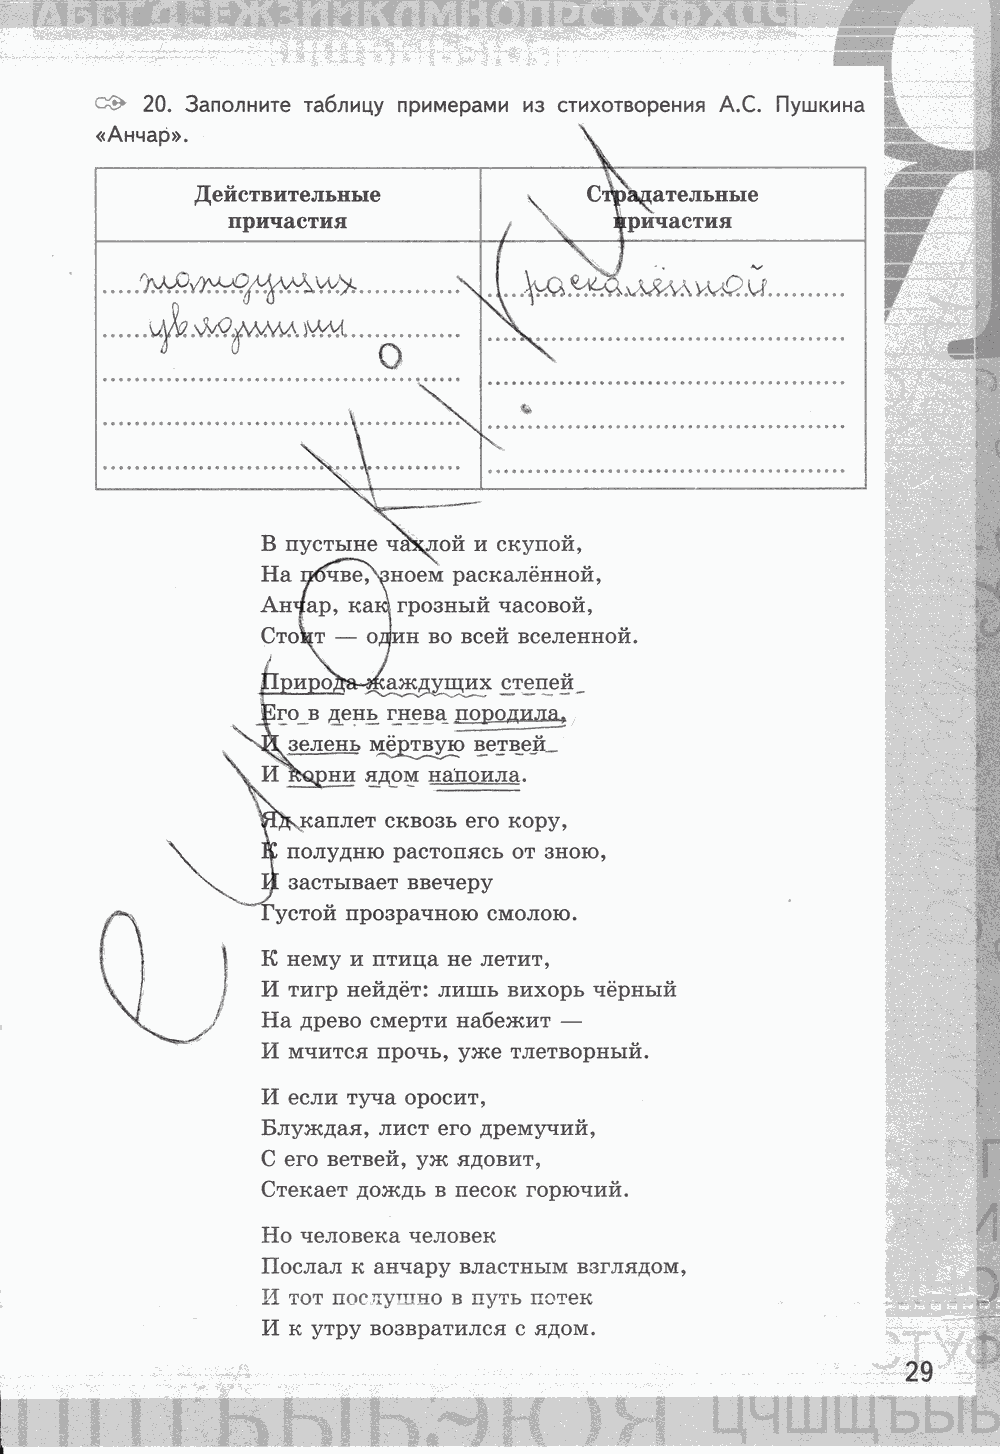 20. Заполните таблицу примерами из стихотворения А.С. Пушкина
«Анчар».
Действительные причастия
Страдательные причастия
жаждущих
раскалённой
увядшими
В пустыне чахлой и скупой,
На почве, зноем раскалённой,
Анчар, как грозный часовой,
Стоит — один во всей вселенной.
Природа жаждущих степей
Его в день гнева породила,
И зелень мёртвую ветвей
И корни ядом напоила.
Яд каплет сквозь его кору,
К полудню растопясь от зною,
И застывает ввечеру
Густой прозрачною смолою.
К нему и птица не летит,
И тигр нейдёт: лишь вихорь чёрный
На древо смерти набежит —
И мчится прочь, уже тлетворный.
И если туча оросит,
Блуждая, лист его дремучий,
С его ветвей, уж ядовит,
Стекает дождь в песок горючий.
Но человека человек
Послал к анчару властным взглядом,
И тот послушно в путь потек
И к утру возвратился с ядом.
29